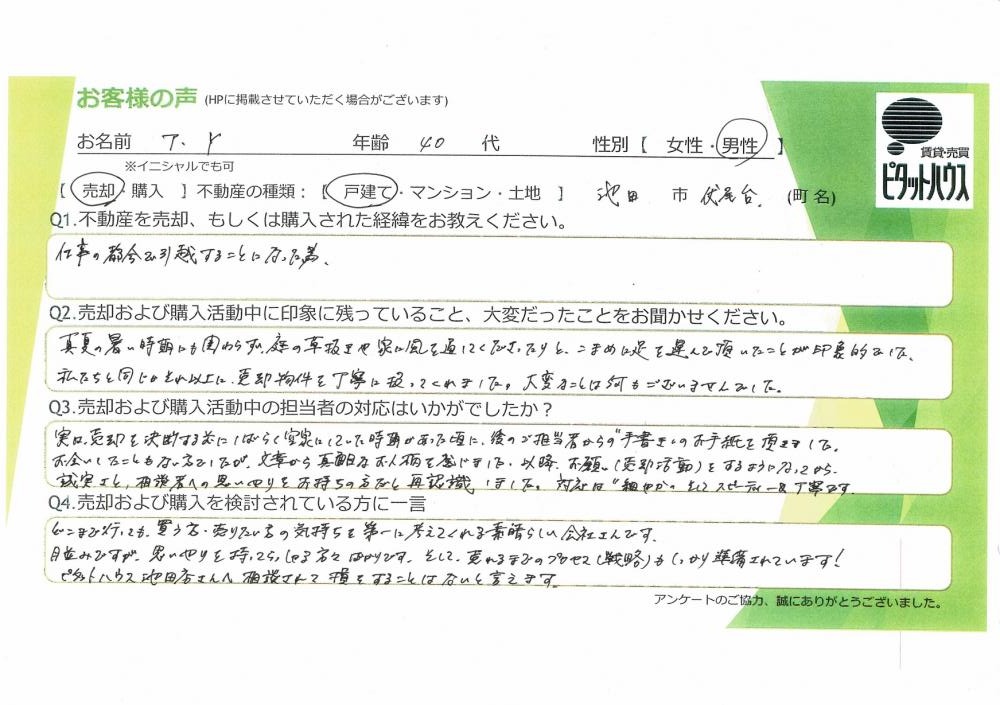 お客様の声 (HPに掲載させていただく場合がございます)
お名前 T. Y 年齢 40 代 性別【 女性・男性 】
※イニシャルでも可
【 売却・購入 】不動産の種類：【 戸建て・マンション・土地 】 池田 市 伏尾台. (町名)
賃貸・売買
ピタットハウス
Q1.不動産を売却、もしくは購入された経緯をお教えください。
仕事の都合で引越することになった為、
Q2.売却および購入活動中に印象に残っていること、大変だったことをお聞かせください。
真夏の暑い時期にも関わらず、庭の草抜きや家に風を通してくださったりと、こまめに足を運んで頂いたことが印象的でした。
私たちと同じかそれ以上に、売却物件を丁寧に扱ってくれました。大変なことは何もございませんでした。
Q3.売却および購入活動中の担当者の対応はいかがでしたか？
実は、売却を決断する前にしばらく空家にしていた時期があった頃に、後のご担当者からの"手書き"のお手紙を頂きました。
お会いしたこともない方でしたが、文章から真面目なお人柄を感じました。以降、お願い(売却活動)をするようになってから、
誠実さと、相談者への思いやりをお持ちの方だと再認識しました。対応は"細やか"そしてスピーディー&丁寧です。
Q4.売却および購入を検討されている方に一言
どこまで行っても、買う方・売りたい方の気持ちを第一に考えてくれる素晴らしい会社さんです。
月並みですが、思いやりを持ってらっしゃる方々ばかりです。そして、売れるまでのプロセス(戦略)もしっかり準備されています！
ピタットハウス池田店さんへ相談されて損をすることはないと言えます。
アンケートのご協力、誠にありがとうございました。